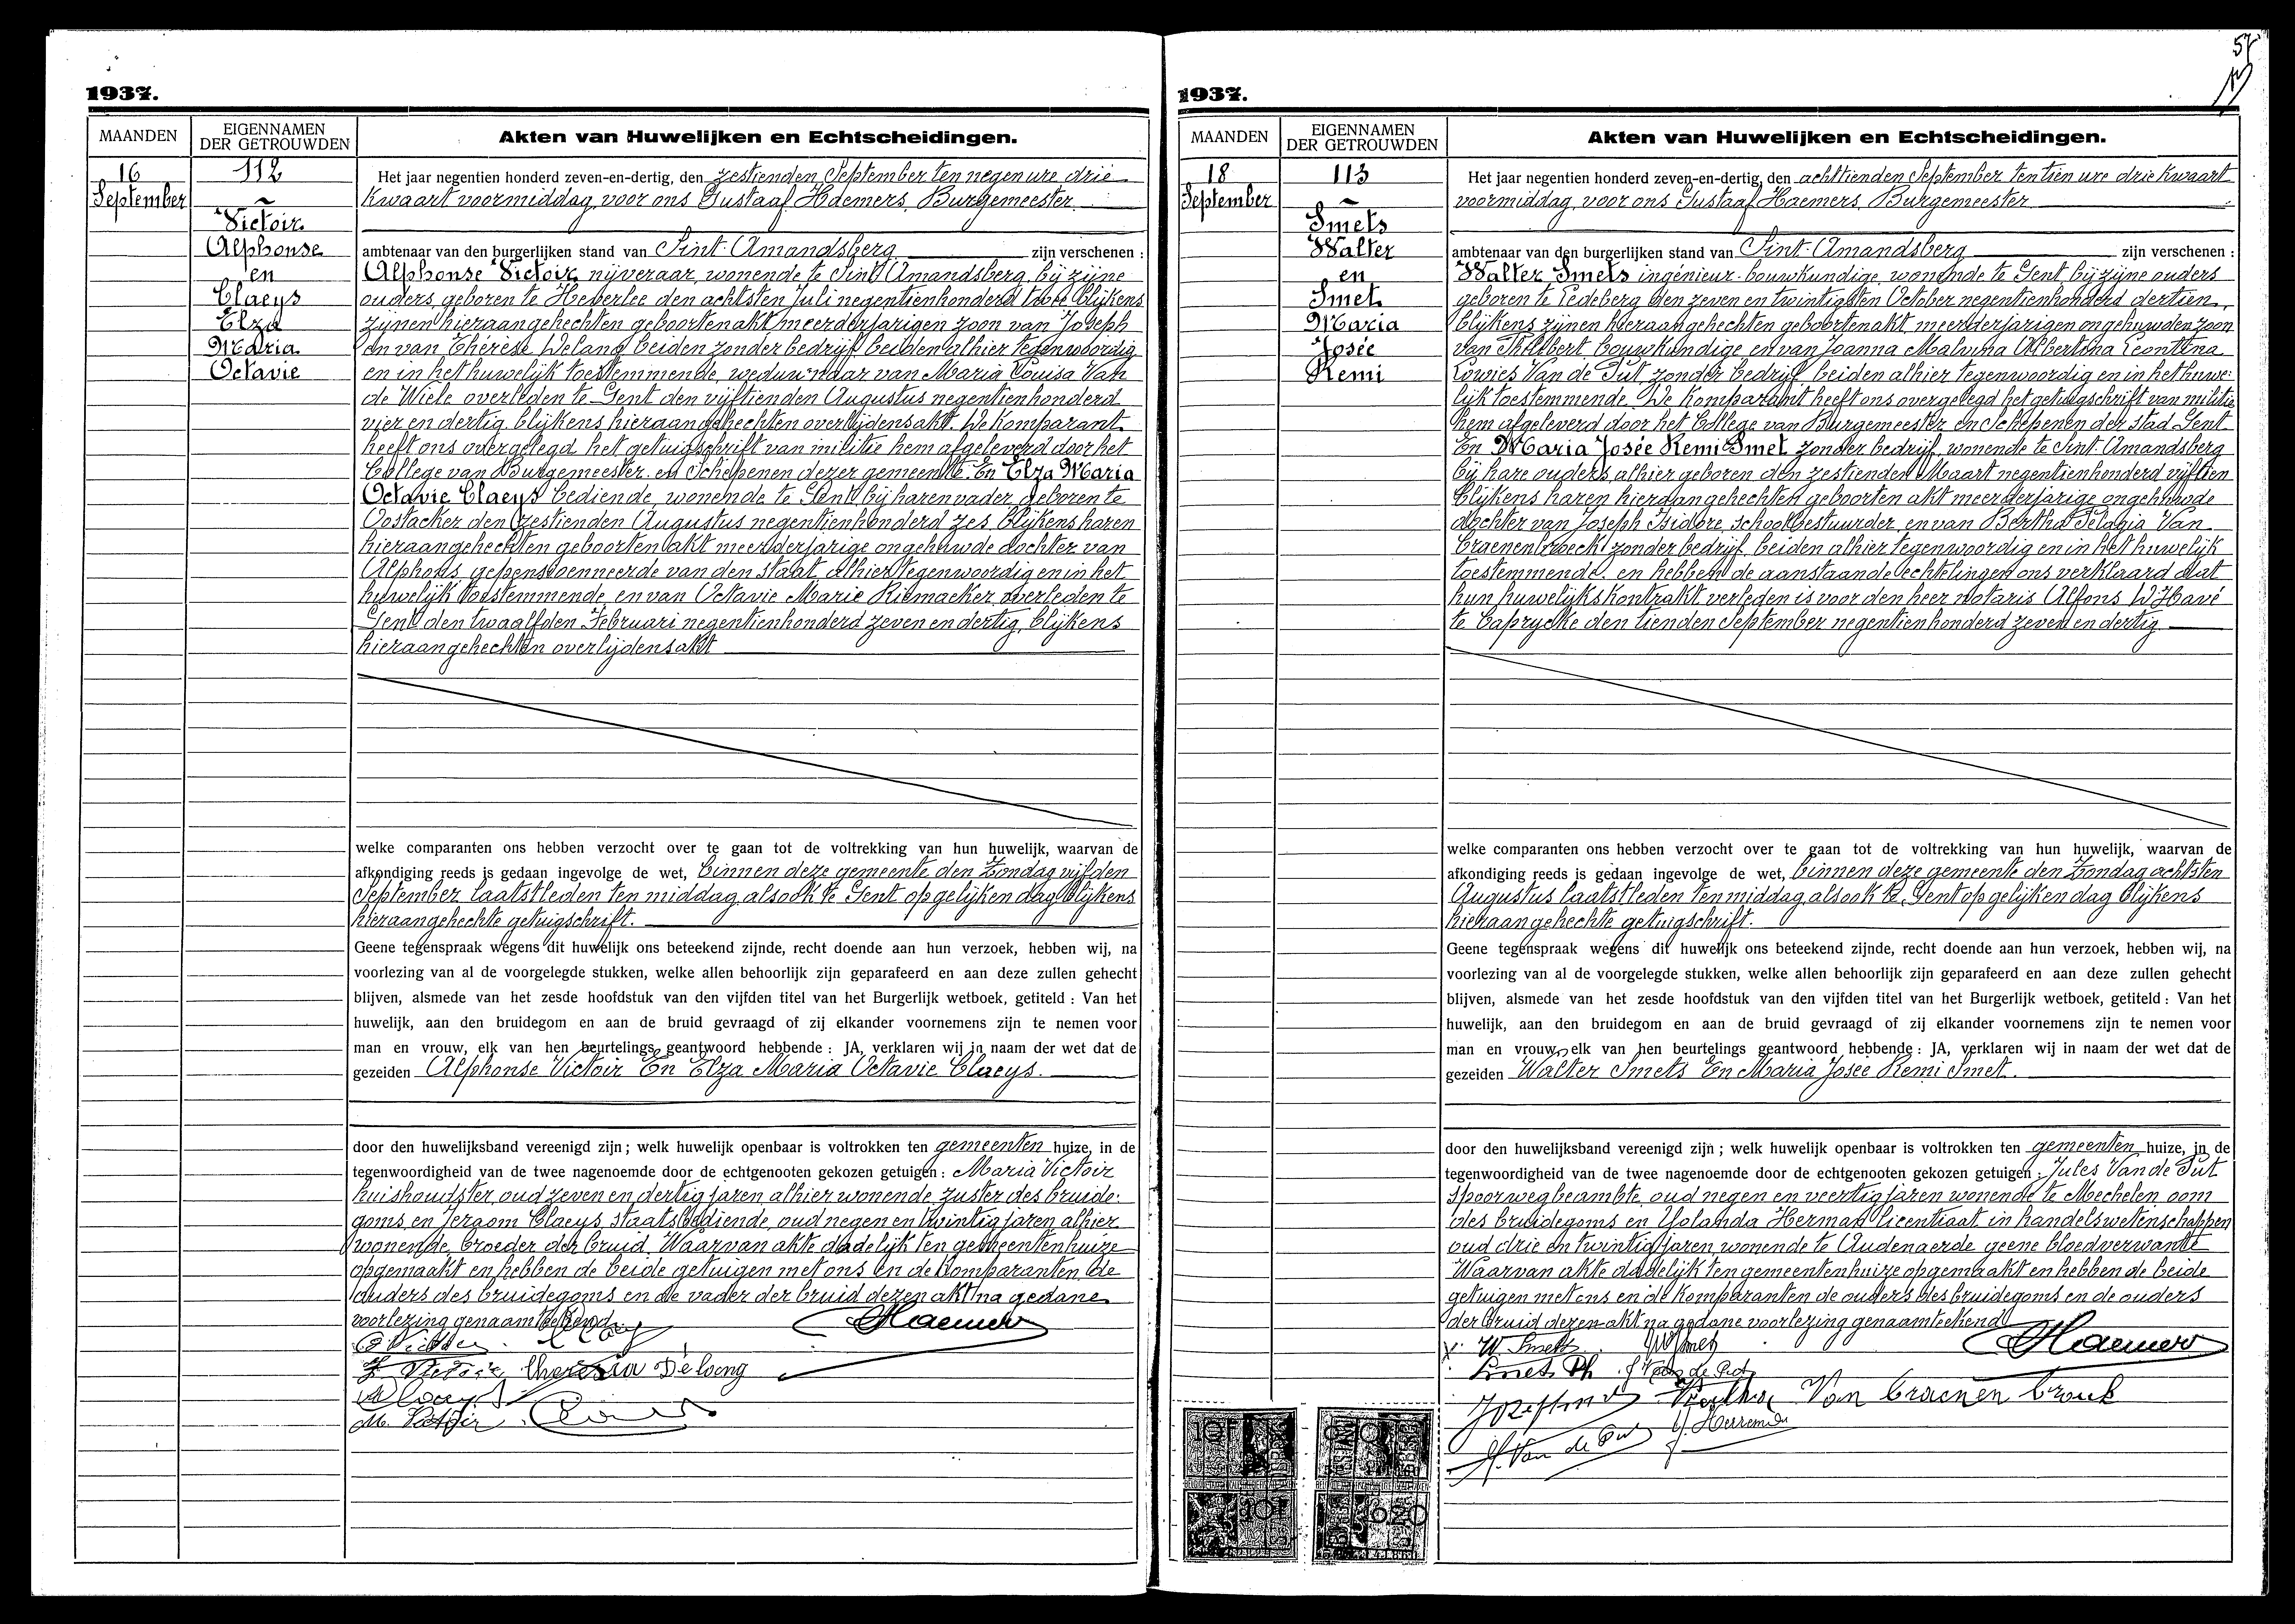 57
1937.
MAANDEN
EIGENNAMEN
DER GETROUWDEN
Akten van Huwelijken en Echtscheidingen.
16
September
112
Victoir
Alphonse
en
Claeys
Elza
Maria
Octavie
Het jaar negentien honderd zeven-en-dertig, den zestienden September ten negen ure drie
kwaart voormiddag, voor ons Gustaaf Haemers, Burgemeester
ambtenaar van den burgerlijken stand van Sint-Amandsberg zijn verschenen :
Alphonse Victoir nijveraar, wonende te Sint Amandsberg, bij zijne
ouders, geboren te Heverlee den achtsten Juli negentienhonderd twee blijkens
zijnen hieraangehechten geboortenakt meerderjarigen zoon van Joseph
en van Thérèse Delang beiden zonder bedrijf beiden alhier tegenwoordig
en in het huwelijk toestemmende, weduwnaar van Maria Louisa Van
de Wiele overleden te Gent den vijftienden Augustus negentienhonderd
vier en dertig, blijkens hieraangehechten overlijdensakt. De komparant
heeft ons overgelegd het getuigschrift van militie hem afgeleverd door het
College van Burgemeester en Schepenen dezer gemeente. En Elza Maria
Octavie Claeys bediende, wonende te Gent bij haren vader, geboren te
Oostacker den zestienden Augustus negentienhonderd zes, blijkens haren
hieraangehechten geboorten akt meerderjarige ongehuwde dochter van
Alphons, gepensioenneerde van den staat, alhier tegenwoordig en in het
huwelijk toestemmende, en van Octavie Marie Rijmacker, overleden te
Gent den twaalfden Februari negentienhonderd zeven en dertig, blijkens
hieraangehechten overlijdensakt
welke comparanten ons hebben verzocht over te gaan tot de voltrekking van hun huwelijk, waarvan de
afkondiging reeds is gedaan ingevolge de wet, binnen deze gemeente den Zondag vijfden
September laatstleden ten middag, alsook te Gent op gelijken dag blijkens
hieraangehechte getuigschrift.
Geene tegenspraak wegens dit huwelijk ons beteekend zijnde, recht doende aan hun verzoek, hebben wij, na
voorlezing van al de voorgelegde stukken, welke allen behoorlijk zijn geparafeerd en aan deze zullen gehecht
blijven, alsmede van het zesde hoofdstuk van den vijfden titel van het Burgerlijk wetboek, getiteld : Van het
huwelijk, aan den bruidegom en aan de bruid gevraagd of zij elkander voornemens zijn te nemen voor
man en vrouw, elk van hen beurtelings geantwoord hebbende : JA, verklaren wij in naam der wet dat de
gezeiden Alphonse Victoir En Elza Maria Octavie Claeys.
door den huwelijksband vereenigd zijn ; welk huwelijk openbaar is voltrokken ten gemeenten huize, in de
tegenwoordigheid van de twee nagenoemde door de echtgenooten gekozen getuigen : Maria Victoir
huishoudster, oud zeven en dertig jaren, alhier wonende, zuster des bruide-
goms, en Jeroom Claeys, staatsbediende, oud negen en twintig jaren, alhier
wonende, broeder der bruid. Waarvan akte dadelijk ten gemeentenhuize
opgemaakt en hebben de beide getuigen met ons en de komparanten de
ouders des bruidegoms en de vader der bruid dezen akt na gedane
voorlezing genaamteekend
Haemers
Theresia Delang
M. Victoir
1937.
MAANDEN
EIGENNAMEN
DER GETROUWDEN
Akten van Huwelijken en Echtscheidingen.
18
September
113
Smets
Walter
en
Smet
Maria
Josée
Remi
Het jaar negentien honderd zeven-en-dertig, den achttienden September ten tien ure drie kwaart
voormiddag, voor ons Gustaaf Haemers, Burgemeester
ambtenaar van den burgerlijken stand van Sint-Amandsberg zijn verschenen :
Walter Smets ingenieur-bouwkundige, wonende te Gent bij zijne ouders
geboren te Ledeberg den zeven en twintigsten October negentienhonderd dertien,
blijkens zijnen hieraangehechten geboortenakt, meerderjarigen ongehuwden zoon
van Philibert, bouwkundige en van Joanna Malvina Albertina Leontina
Lowies Van de Put, zonder bedrijf beiden alhier tegenwoordig en in het huwe-
lijk toestemmende. De komparant heeft ons overgelegd het getuigschrift van militie
hem afgeleverd door het College van Burgemeester en Schepenen der stad Gent
En Maria Josée Remi Smet zonder bedrijf, wonende te Sint-Amandsberg
bij hare ouders, alhier geboren den zestienden Maart negentienhonderd vijftien
blijkens haren hieraangehechten geboorten akt meerderjarige ongehuwde
dochter van Joseph Isidore, schoolbestuurder, en van Bertha Pelagia Van
Craenenbroeck, zonder bedrijf, beiden alhier tegenwoordig en in het huwelijk
toestemmende, en hebben de aanstaande echtelingen ons verklaard dat
hun huwelijkskontrakt verleden is voor den heer notaris Alfons D'Havé
te Caprycke den tienden September negentienhonderd zeven en dertig
welke comparanten ons hebben verzocht over te gaan tot de voltrekking van hun huwelijk, waarvan de
afkondiging reeds is gedaan ingevolge de wet, binnen deze gemeente den Zondag achtsten
Augustus laatstleden ten middag, alsook te Gent op gelijken dag blijkens
hieraangehechte getuigschrift.
Geene tegenspraak wegens dit huwelijk ons beteekend zijnde, recht doende aan hun verzoek, hebben wij, na
voorlezing van al de voorgelegde stukken, welke allen behoorlijk zijn geparafeerd en aan deze zullen gehecht
blijven, alsmede van het zesde hoofdstuk van den vijfden titel van het Burgerlijk wetboek, getiteld : Van het
huwelijk, aan den bruidegom en aan de bruid gevraagd of zij elkander voornemens zijn te nemen voor
man en vrouw, elk van hen beurtelings geantwoord hebbende : JA, verklaren wij in naam der wet dat de
gezeiden Walter Smets En Maria Josée Remi Smet.
door den huwelijksband vereenigd zijn ; welk huwelijk openbaar is voltrokken ten gemeenten huize, in de
tegenwoordigheid van de twee nagenoemde door de echtgenooten gekozen getuigen : Jules Van de Put
spoorwegbeambte, oud negen en veertig jaren wonende te Mechelen, oom
des bruidegoms en Yolanda Herman licentiaat in handelswetenschappen
oud drie en twintig jaren, wonende te Audenaerde geene bloedverwante
Waarvan akte dadelijk ten gemeentenhuize opgemaakt en hebben de beide
getuigen met ons en de komparanten de ouders des bruidegoms en de ouders
der bruid dezen akt na gedane voorlezing genaamteekend
W. Smets
Haemers
Smets Ph J Van de Put
Van Craenenbrouck
Van de Put